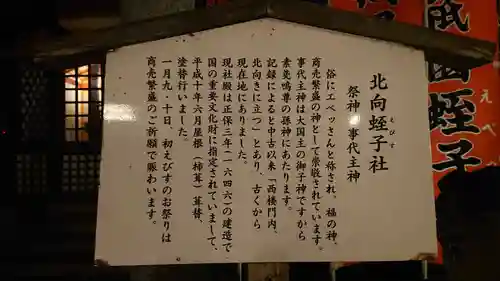 北向蛭子社
えびす
祭神 事代主神
俗にエベッさんと称され、福の神、
商売繁盛の神として崇敬されています。
事代主神は大国主の御子神ですから
素戔嗚尊の孫神にあたります。
記録によると中古以来「西楼門内、
北向きに立つ」とあり、古くから
現在地にありました。
現社殿は正保三年(一六四六)の建造で
国の重要文化財に指定されていまして、
平成十年六月屋根(柿葺)葺替、
塗替行いました。
一月九・十日、初えびすのお祭りは
商売繁盛のご祈願で賑わいます。
蛭子
え